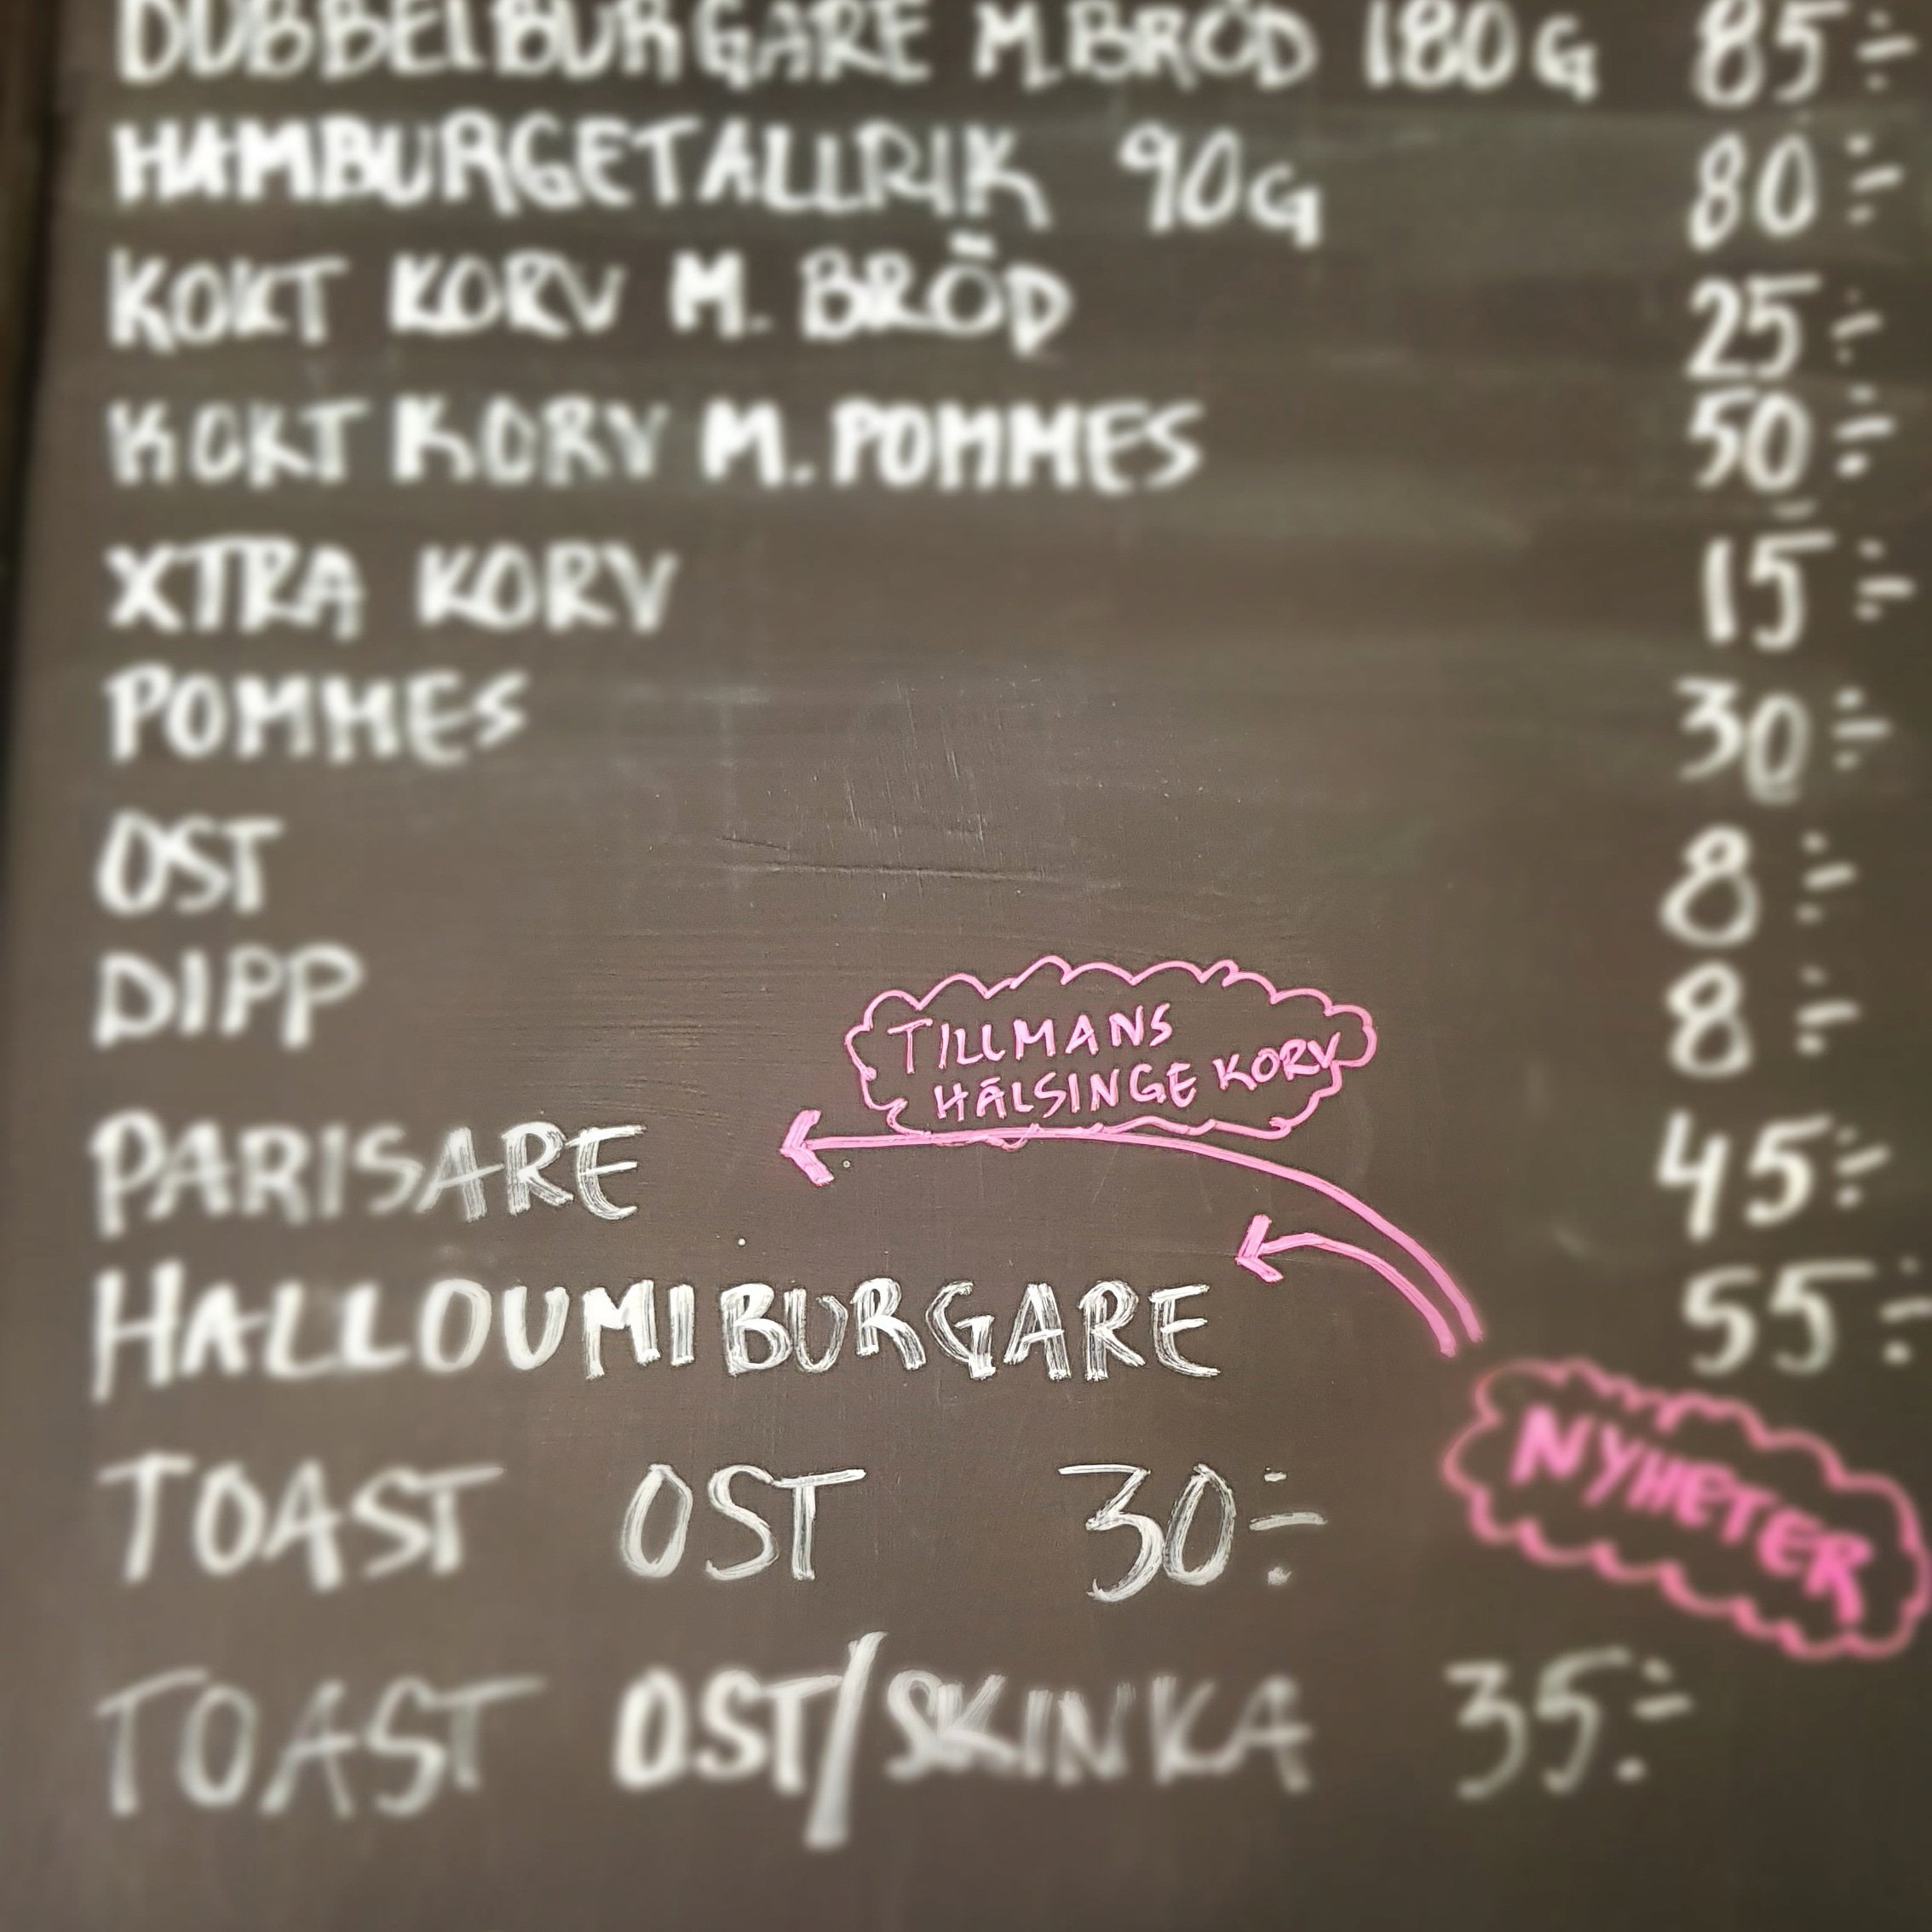 DUBBELBURGARE M.BRÖD 180G 85:-
HAMBURGETALLRIK 90G 80:-
KOKT KORV M. BRÖD 25:-
KOKT KORV M. POMMES 50:-
XTRA KORV 15:-
POMMES 30:-
OST 8:-
DIPP 8:-
TILLMANS
HÄLSINGE KORV
PARISARE 45:-
HALLOUMIBURGARE 55:-
NYHETER
TOAST OST 30:-
TOAST OST/SKINKA 35:-